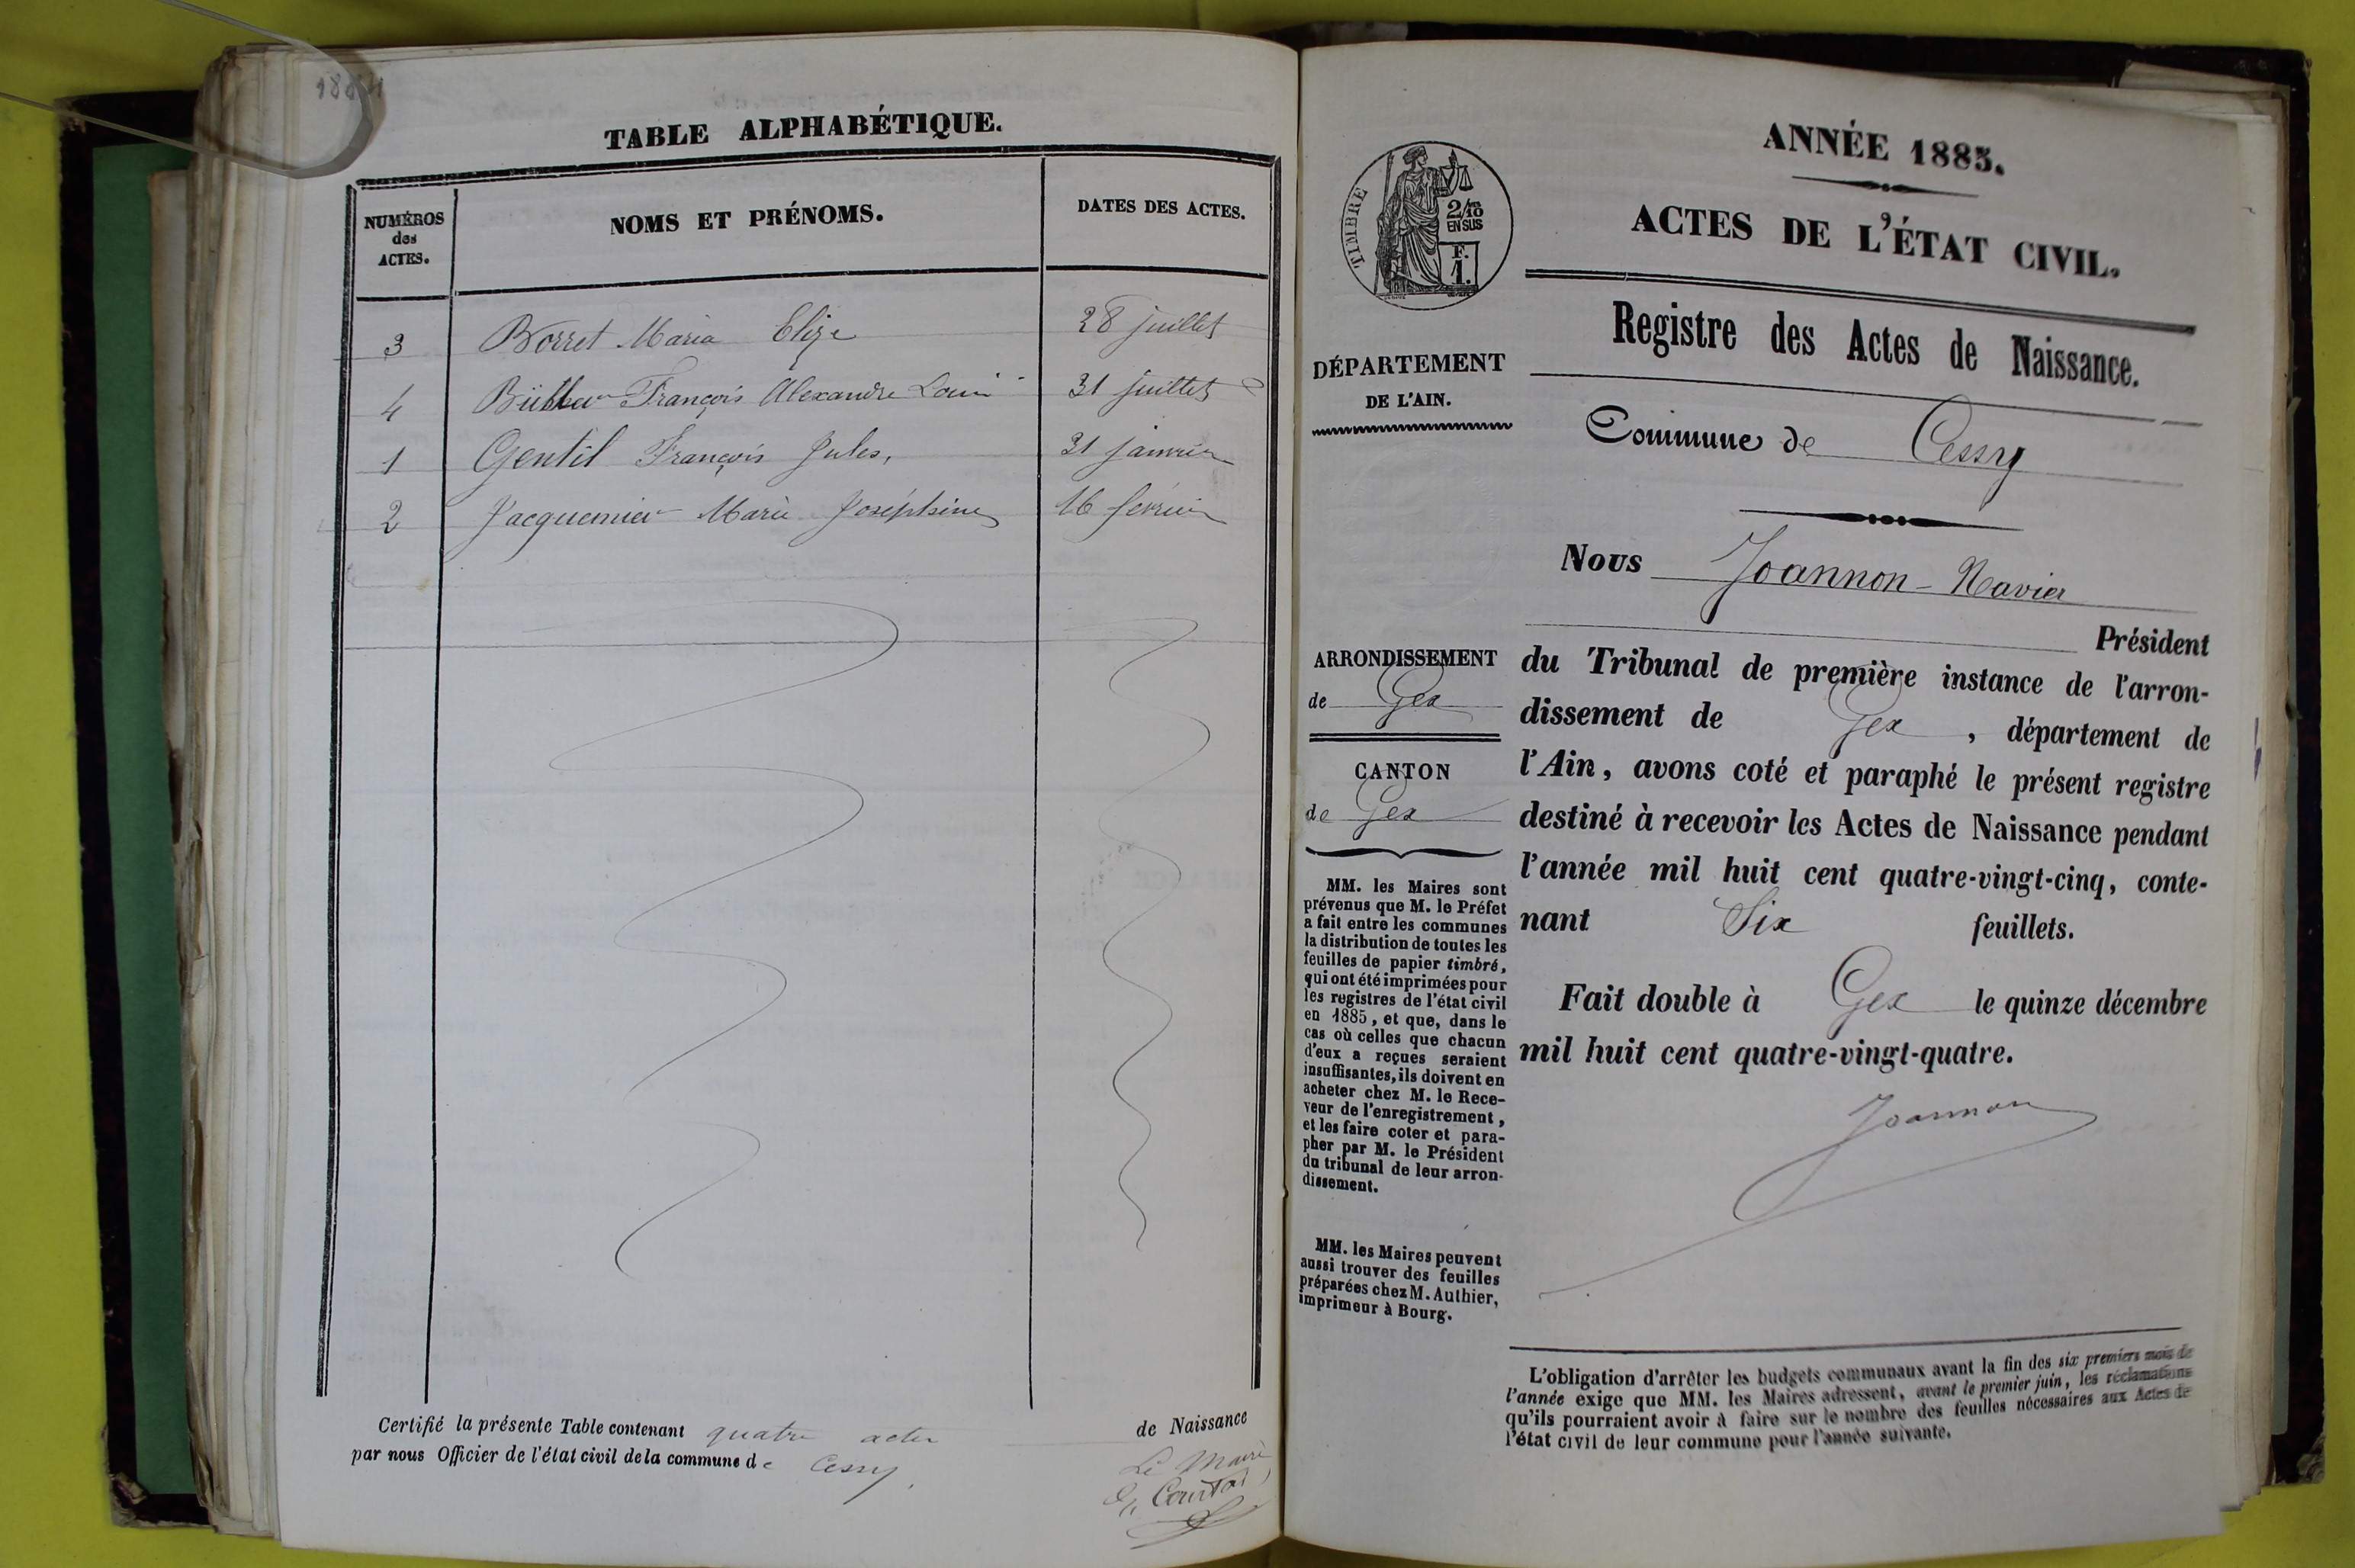 1884
TABLE ALPHABÉTIQUE.
NUMÉROS des ACTES.
NOMS ET PRÉNOMS.
DATES DES ACTES.
3 Borret Maria Elize 28 juillet
4 François Alexandre Louis 31 juillet
1 Gentil François Jules, 31 janvier
2 Jacquemier Marie Joséphine 16 février
Certifié la présente Table contenant quatre actes de Naissance
par nous Officier de l'état civil de la commune de Cessy.
Le Maire
ANNÉE 1885.
ACTES DE L'ÉTAT CIVIL.
TIMBRE
2/10
EN SUS
F.
1.
Registre des Actes de Naissance.
DÉPARTEMENT
DE L'AIN.
Commune de Cessy
Nous Joannon-Navier
Président
du Tribunal de première instance de l'arron-
dissement de Gex, département de
l'Ain, avons coté et paraphé le présent registre
destiné à recevoir les Actes de Naissance pendant
l'année mil huit cent quatre-vingt-cinq, conte-
nant Six feuillets.
Fait double à Gex le quinze décembre
mil huit cent quatre-vingt-quatre.
Joannon
ARRONDISSEMENT
de Gex
CANTON
de Gex
MM. les Maires sont
prévenus que M. le Préfet
a fait entre les communes
la distribution de toutes les
feuilles de papier timbré,
qui ont été imprimées pour
les registres de l'état civil
en 1885, et que, dans le
cas où celles que chacun
d'eux a reçues seraient
insuffisantes, ils doivent en
acheter chez M. le Rece-
veur de l'enregistrement,
et les faire coter et para-
pher par M. le Président
du tribunal de leur arron-
dissement.
MM. les Maires peuvent
aussi trouver des feuilles
préparées chez M. Authier,
imprimeur à Bourg.
L'obligation d'arrêter les budgets communaux avant la fin des six premiers mois de
l'année exige que MM. les Maires adressent, avant le premier juin, les réclamations
qu'ils pourraient avoir à faire sur le nombre des feuilles nécessaires aux Actes de
l'état civil de leur commune pour l'année suivante.